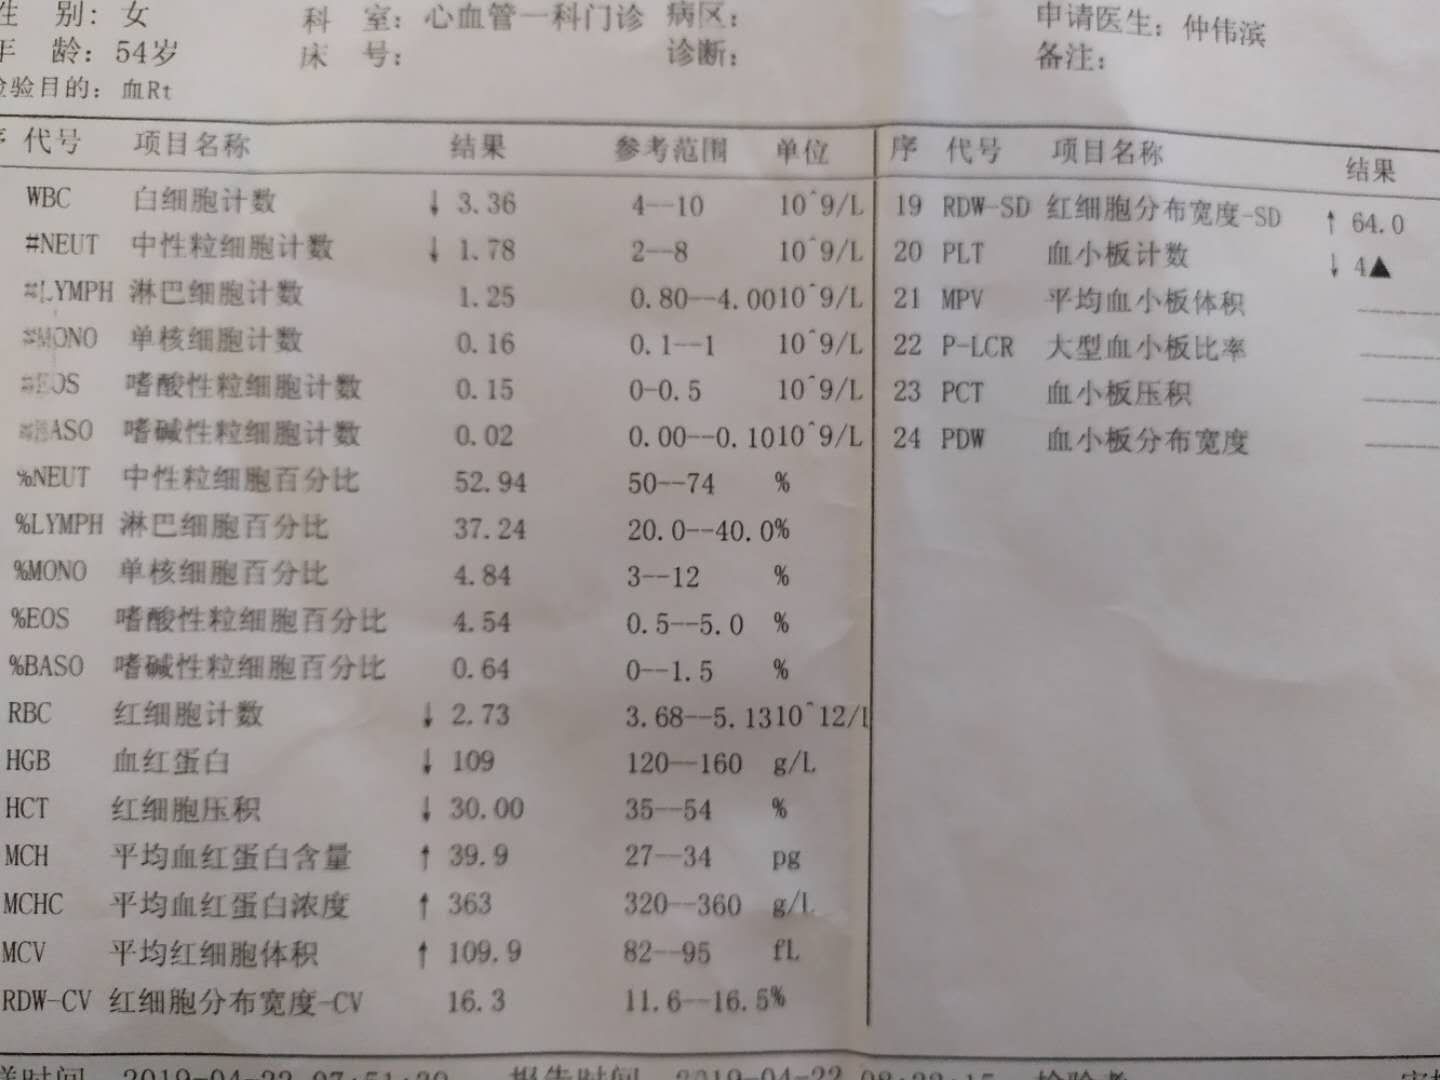 性 别: 女 科 室: 心血管一科门诊 病区: 申请医生: 仲伟滨
年 龄: 54岁 床 号: 诊断: 备注:
检验目的: 血Rt
序 代号 项目名称 结果 参考范围 单位
WBC 白细胞计数 ↓ 3.36 4--10 10^9/L
#NEUT 中性粒细胞计数 ↓ 1.78 2--8 10^9/L
#LYMPH 淋巴细胞计数 1.25 0.80--4.00 10^9/L
#MONO 单核细胞计数 0.16 0.1--1 10^9/L
#EOS 嗜酸性粒细胞计数 0.15 0-0.5 10^9/L
#BASO 嗜碱性粒细胞计数 0.02 0.00--0.10 10^9/L
%NEUT 中性粒细胞百分比 52.94 50--74 %
%LYMPH 淋巴细胞百分比 37.24 20.0--40.0 %
%MONO 单核细胞百分比 4.84 3--12 %
%EOS 嗜酸性粒细胞百分比 4.54 0.5--5.0 %
%BASO 嗜碱性粒细胞百分比 0.64 0--1.5 %
RBC 红细胞计数 ↓ 2.73 3.68--5.13 10^12/L
HGB 血红蛋白 ↓ 109 120--160 g/L
HCT 红细胞压积 ↓ 30.00 35--54 %
MCH 平均血红蛋白含量 ↑ 39.9 27--34 pg
MCHC 平均血红蛋白浓度 ↑ 363 320--360 g/L
MCV 平均红细胞体积 ↑ 109.9 82--95 fL
RDW-CV 红细胞分布宽度-CV 16.3 11.6--16.5 %
序 代号 项目名称 结果
19 RDW-SD 红细胞分布宽度-SD ↑ 64.0
20 PLT 血小板计数 ↓ 4▲
21 MPV 平均血小板体积 -----
22 P-LCR 大型血小板比率 -----
23 PCT 血小板压积 -----
24 PDW 血小板分布宽度 -----
时间 2019-04-22 07:51:20 报告时间 2019-04-22 08:22:15 检验者